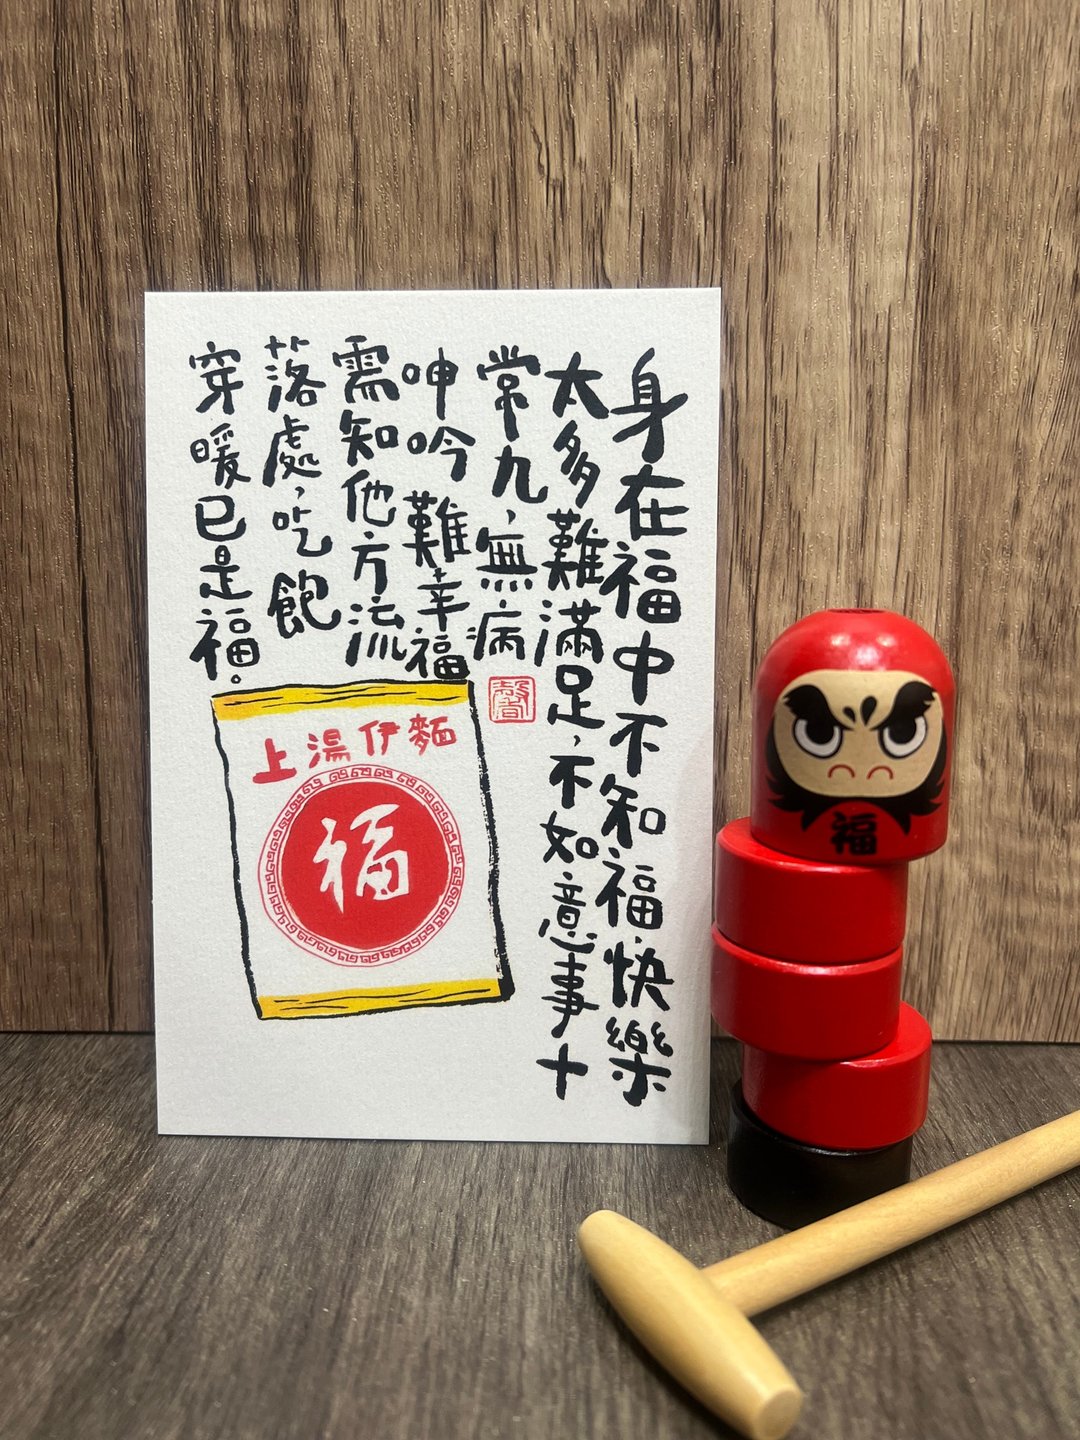 身在福中不知福，快樂
太多難滿足，不如意事十
常九，無病
呻吟難幸福
需知他方流
落處，吃飽
穿暖已是福。
上湯伊麵
福
福